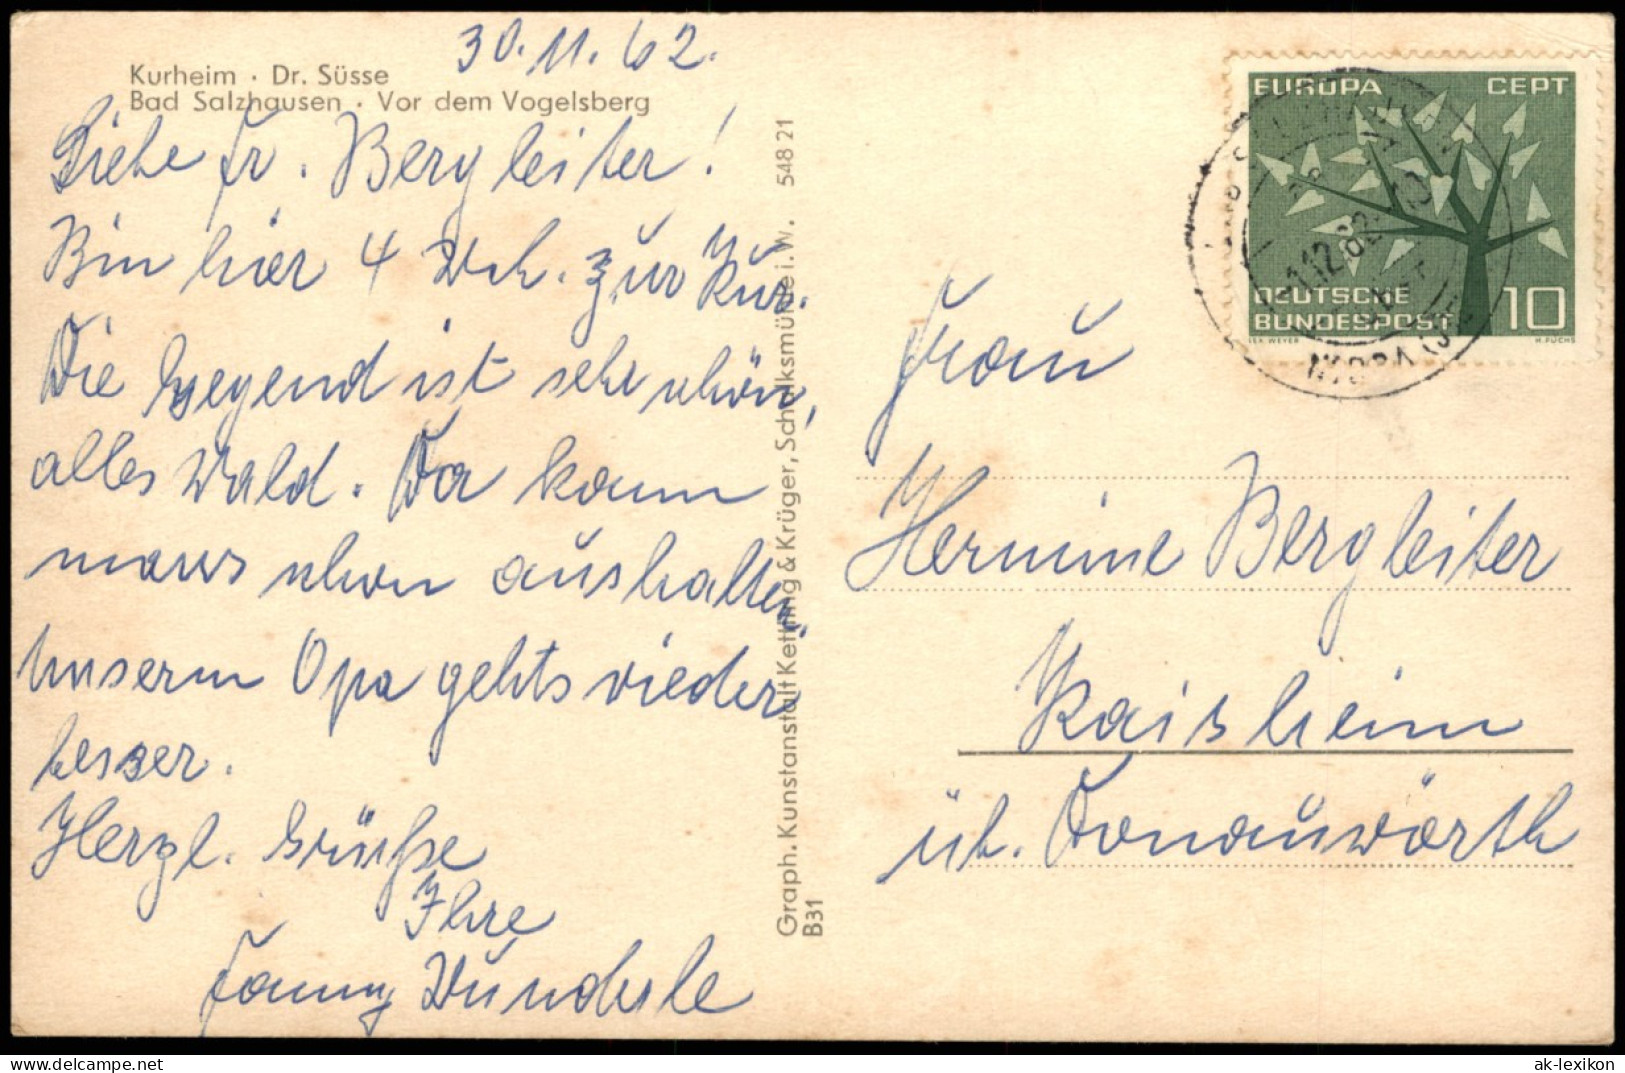 30.11.62.
Kurheim · Dr. Süsse
Bad Salzhausen · Vor dem Vogelsberg
Liebe Fr. Bergleiter!
Bin hier 4 Wch. zur Kur.
Die Gegend ist sehr schön,
alles Wald. Da kann
mans schon aushalten.
Unserm Opa gehts wieder
besser.
Herzl. Grüße
Ihre
Fanny Wunderle
Graph. Kunstanstalt Ketling & Krüger, Schalksmühle i. W. 548 21
B31
EUROPA CEPT
DEUTSCHE
BUNDESPOST 10
LEX WEYER H. FUCHS
-1.12.62-10
NIDDA
Frau
Hermine Bergleiter
Kaisheim
üb. Donauwörth
ak-lexikon